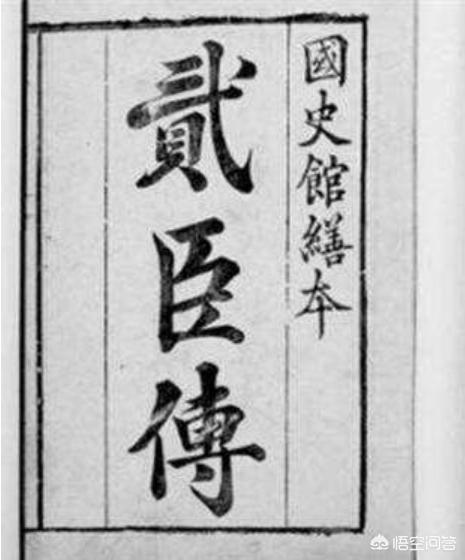 國史館繕本
貳臣傳
悟空问答